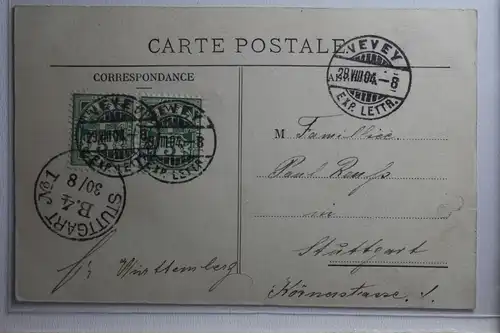 CARTE POSTALE
CORRESPONDANCE
VEVEY
29.VIII.04.–8
EXP. LETTR.
VEVEY
29.VIII.04.–8
EXP. LETTR.
VEVEY
29.VIII.04.–8
EXP. LETTR.
STUTTGART No 1
B.4
30/8
M Familie
Paul
in
Stuttgart
Württemberg
Körnerstrasse